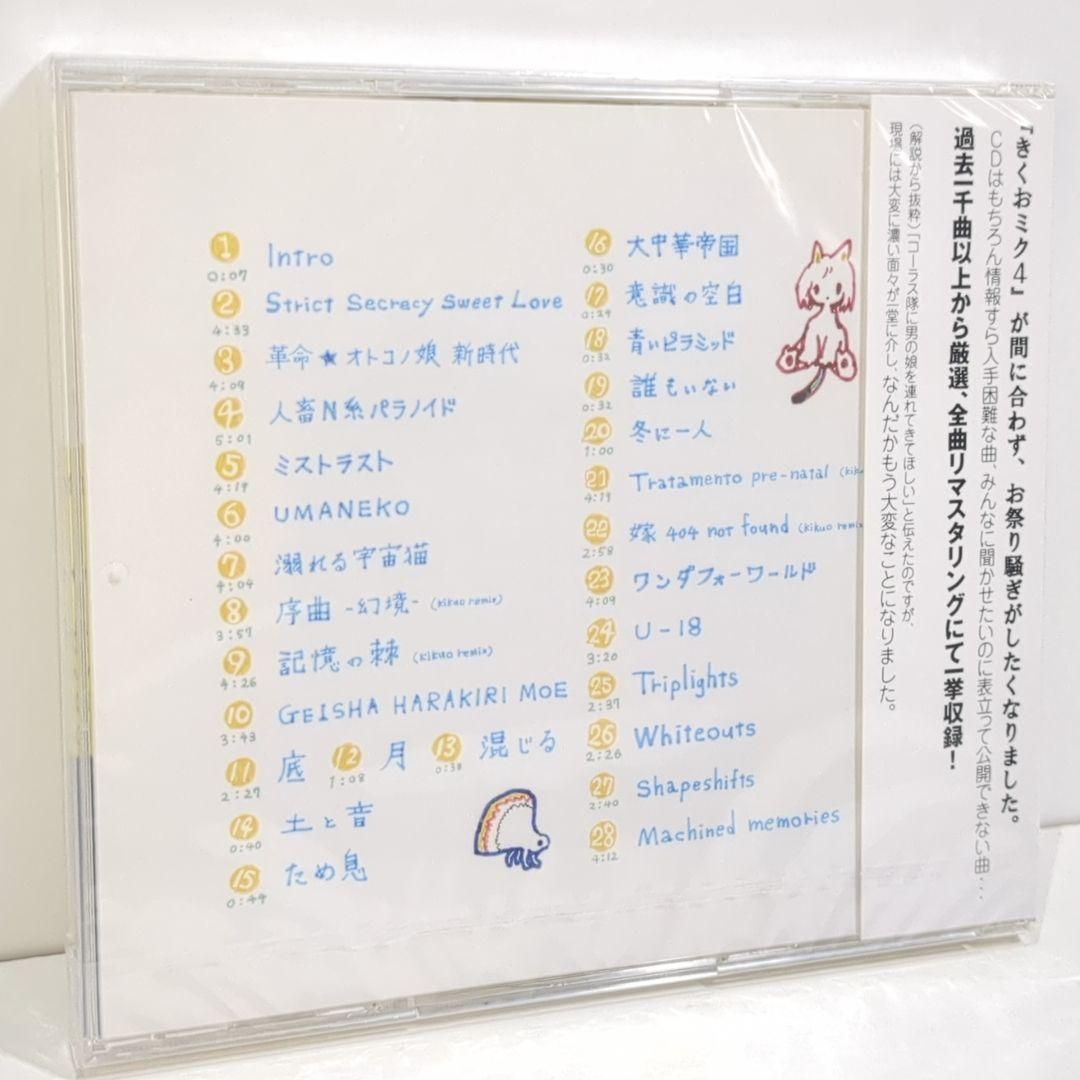 1 Intro
0:07
2 Strict Secracy Sweet Love
4:33
3 革命★オトコノ娘 新時代
4:09
4 人畜N系パラノイド
5:01
5 ミストラスト
4:19
6 UMANEKO
4:00
7 溺れる宇宙猫
4:04
8 序曲 -幻境- (kikuo remix)
3:57
9 記憶の棘 (kikuo remix)
4:26
10 GEISHA HARAKIRI MOE
3:43
11 底 12 月 13 混じる
2:27 1:08 0:38
14 土と音
0:40
15 ため息
0:44
16 大中華帝国
0:30
17 意識の空白
0:29
18 青いピラミッド
0:32
19 誰もいない
0:32
20 冬に一人
1:00
21 Tratamento pre-natal (kik
4:19
22 嫁 404 not found (kikuo remix
2:58
23 ワンダフォーワールド
4:09
24 U-18
3:20
25 Triplights
2:37
26 Whiteouts
2:26
27 Shapeshifts
2:40
28 Machined memories
4:12
『きくおミク4』が間に合わず、お祭り騒ぎがしたくなりました。
CDはもちろん情報すら入手困難な曲、みんなに聞かせたいのに表立って公開できない曲...
過去一千曲以上から厳選、全曲リマスタリングにて一挙収録!
(解説から抜粋)「コーラス隊に男の娘を連れてきてほしい」と伝えたのですが、
現場には大変に濃い面々が一堂に介し、なんだかもう大変なことになりました。